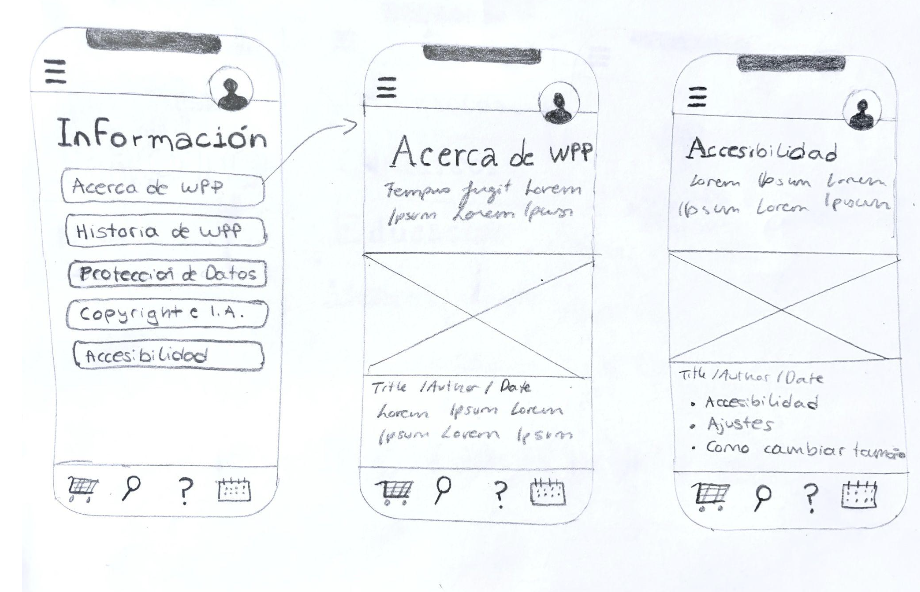 Información
Acerca de WPP
Historia de WPP
Protección de Datos
Copyright e I.A.
Accesibilidad
?
Acerca de WPP
Tempus fugit Lorem
Ipsum Lorem Ipsum
Title /Author / Date
Lorem Ipsum Lorem
Ipsum Lorem Ipsum
?
Accesibilidad
Lorem Ipsum Lorem
Ipsum Lorem Ipsum
Title /Author /Date
• Accesibilidad
• Ajustes
• Como cambiar tamaño
?